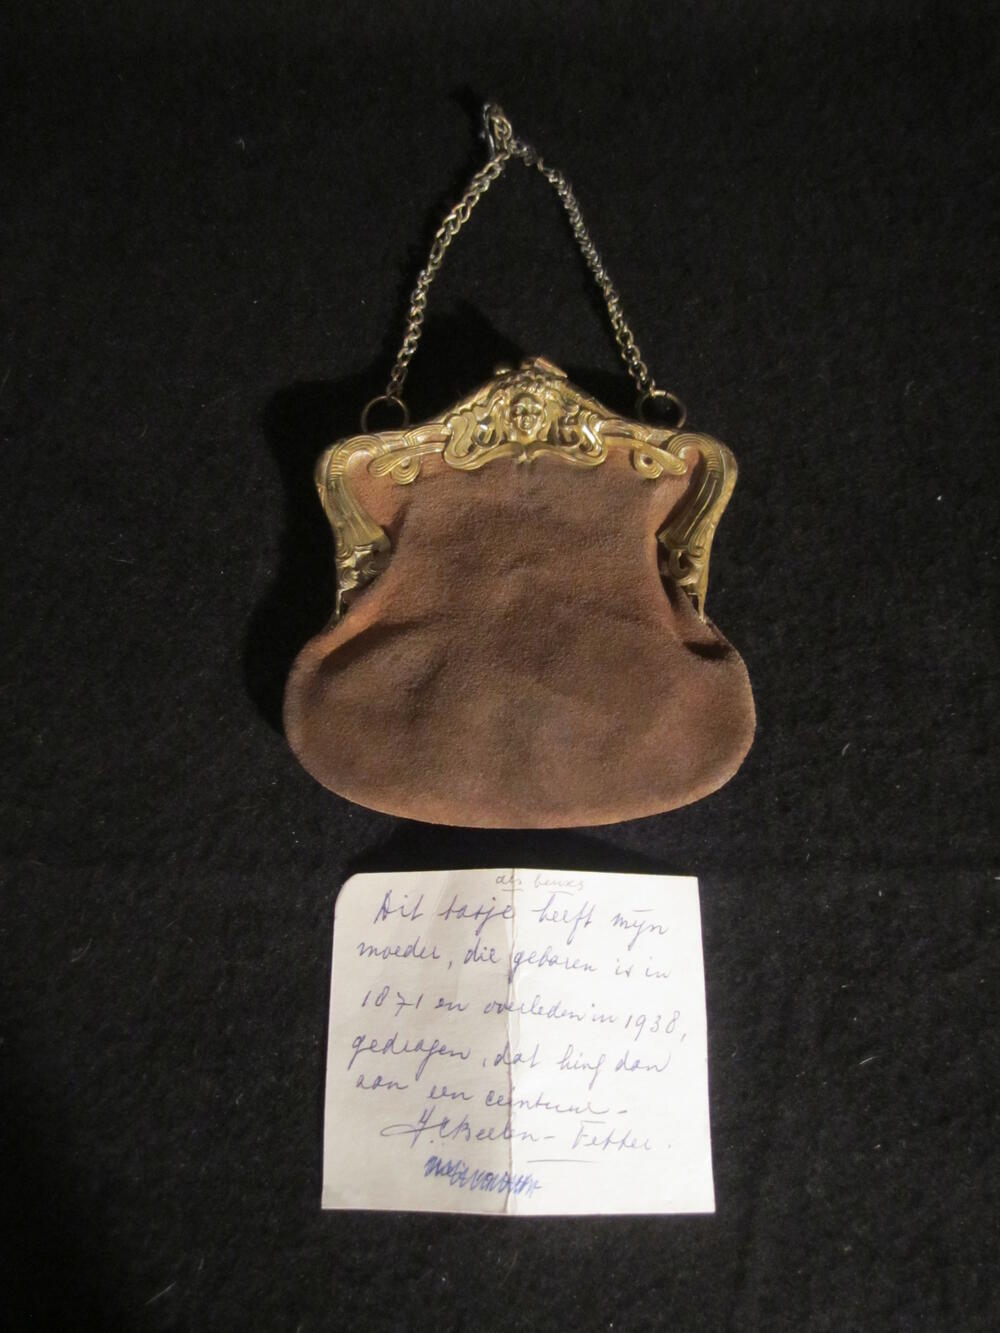 als beurs
Dit tasje heeft mijn
moeder, die geboren is in
1871 en overleden in 1938,
gedragen, dat hing dan
aan een ceintuur -
Beelen - Fetter.